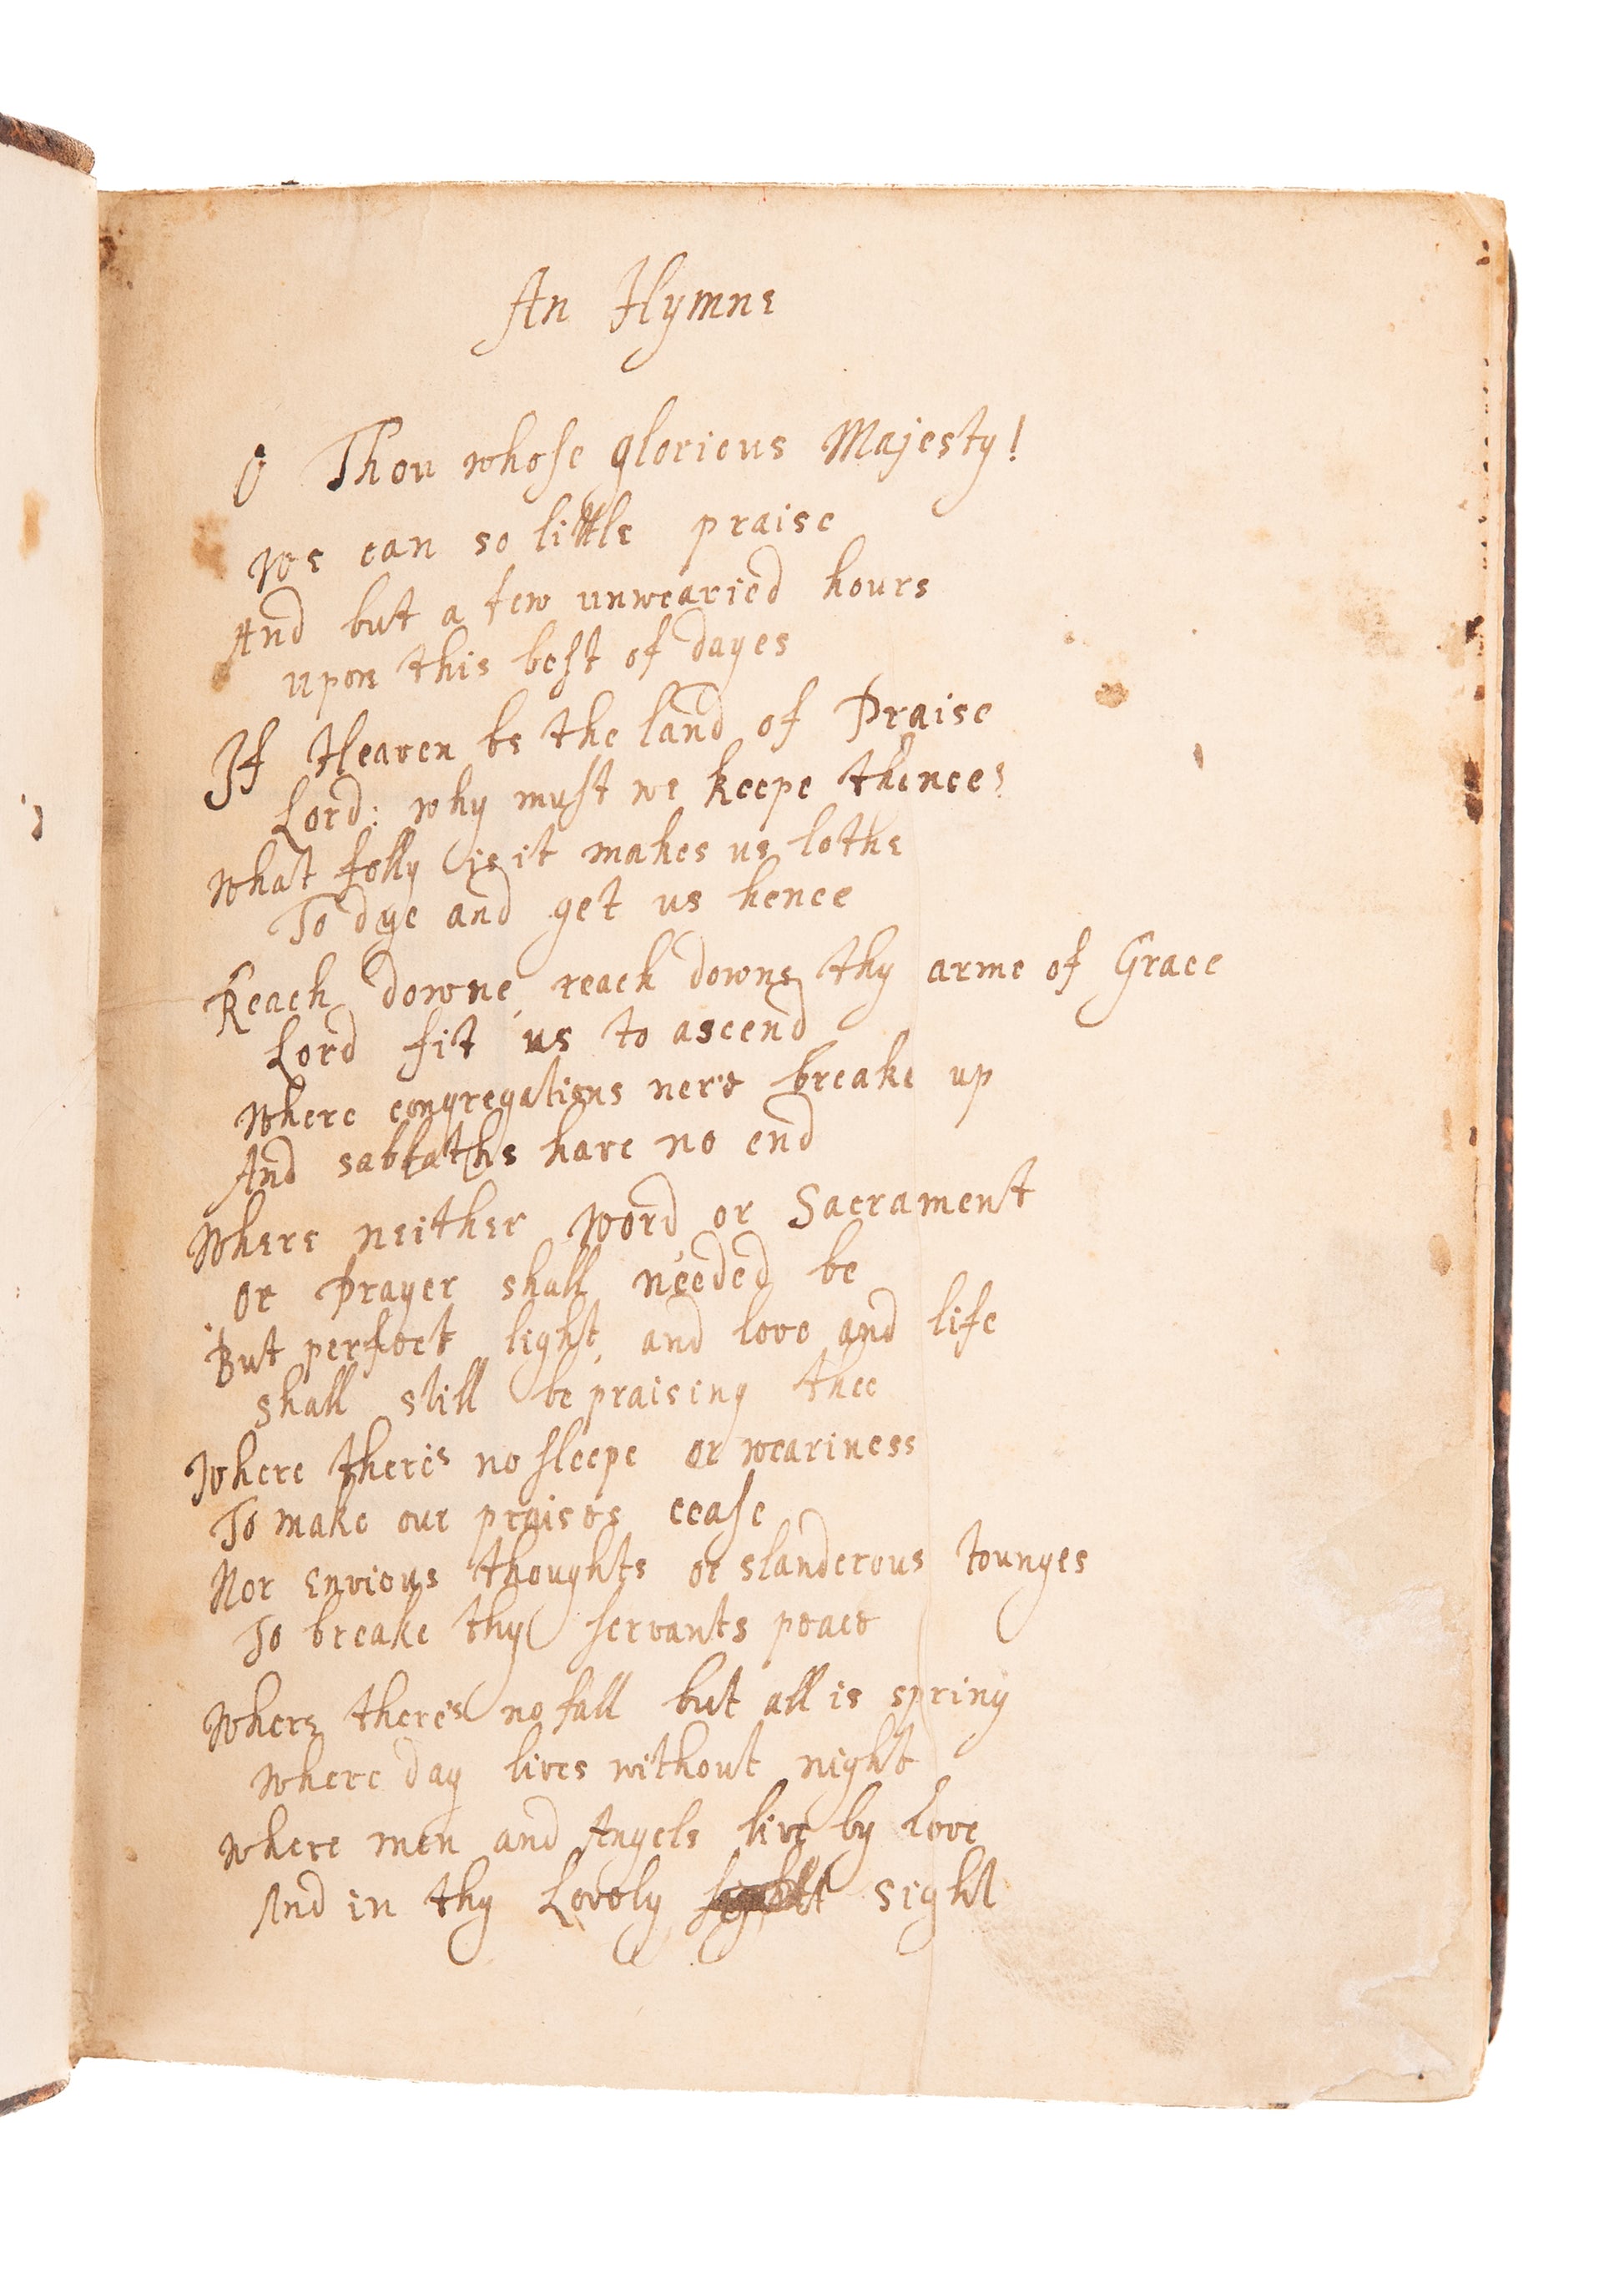 An Hymne
O Thou whose glorious Majesty!
We can so little praise
And but a few unwearied hours
upon this best of dayes
If Heaven be the land of Praise
Lord: why must we keepe thence?
What folly is it makes us lothe
To dye and get us hence
Reach downe, reach downe thy arme of Grace
Lord fit us to ascend
Where congregations nere breake up
And sabbaths have no end
Where neither Word or Sacrament
Or Prayer shall needed be
But perfect light, and love and life
shall still be praising thee
Where there's no sleepe or weariness
To make our praises cease
Nor envious thoughts or slanderous tounges
To breake thy servants peace
Where there's no fall but all is spring
Where day lives without night
Where men and Angels live by Love
And in thy Lovely sight